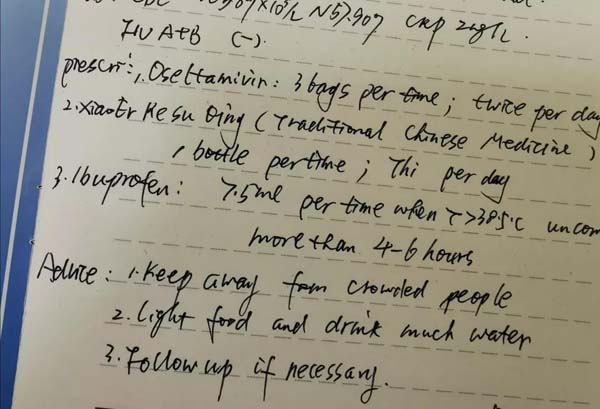 N 57.90% CRP 2mg/L
FLU A+B (-).
prescri: 1. Oseltamivir: 3 bags per time; twice per day
2. XiaoEr Ke Su Qing (Traditional Chinese Medicine)
1 bottle per time; Thi per day
3. Ibuprofen: 7.5ml per time when T>38.5°C uncom
more than 4-6 hours
Advice: 1. Keep away from crowded people
2. Light food and drink much water
3. Follow up if necessary.